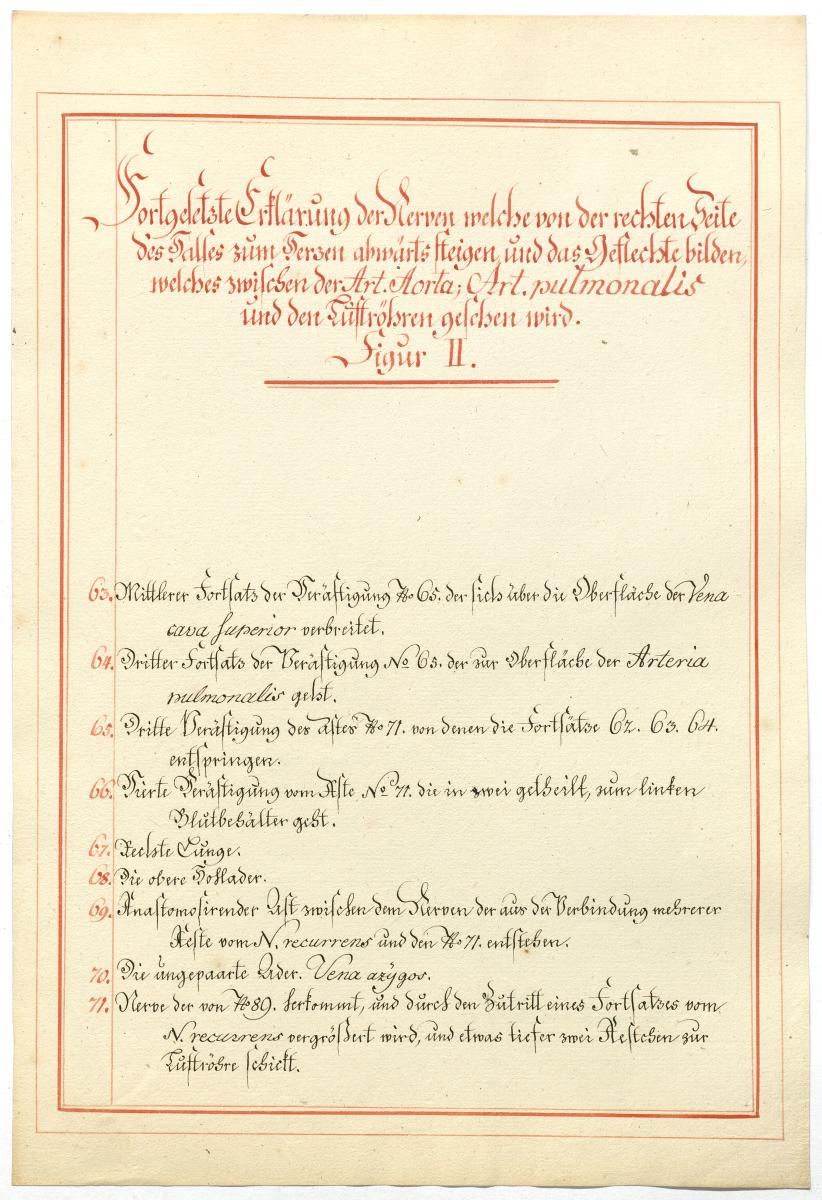 Fortgesetzte Erklärung der Nerven welche von der rechten Seite
des Halses zum Herzen abwärts steigen, und das Geflechte bilden,
welches zwischen der Art. Aorta; Art. pulmonalis
und den Luftröhren gesehen wird.
Figur II.
63. Mittlerer Fortsatz der Verästigung No 65. der sich über die Oberfläche der Vena
cava superior verbreitet.
64. Dritter Fortsatz der Verästigung No 65. der zur Oberfläche der Arteria
pulmonalis geht.
65. Dritte Verästigung des Astes No 71. von denen die Fortsätze 62. 63. 64.
entspringen.
66. Vierte Verästigung vom Aste No 71. die in zwei getheilt, zum linken
Blutbehälter geht.
67. Rechte Lunge.
68. Die obere Hohlader.
69. Anastomosirender Ast zwischen dem Nerven der aus der Verbindung mehrerer
Aeste vom N. recurrens und den No 71. entstehen.
70. Die ungepaarte Ader. Vena azÿgos.
71. Nerve der von No 89. herkommt, und durch den Zutritt eines Fortsatzes vom
N. recurrens vergrößert wird, und etwas tiefer zwei Aestchen zur
Luftröhre schickt.